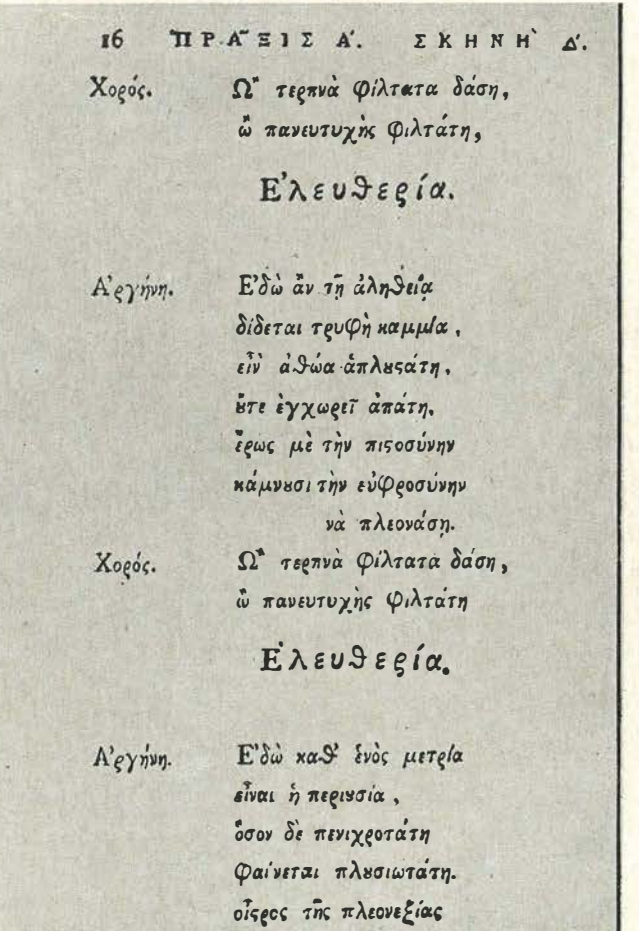 16 ΠΡΑ͂ΞΙΣ Α΄. ΣΚΗΝΗ` Δ΄.
Χορός. Ω῏ τερπνὰ φίλτατα δάση,
ὦ πανευτυχὴς φιλτάτη,
Ε᾿λευθερία.
Α᾿ργήνη. Ε᾿δὼ ἂν τῇ ἀληθείᾳ
δίδεται τρυφὴ καμμία,
εἶν' ἀθώα ἁπλȣϛάτη,
ȣ̓́τε ἐγχωρεῖ ἀπάτη,
ἔρως μὲ τὴν πιϛοσύνην
κάμνȣσι τὴν εὐφροσύνην
νὰ πλεονάσῃ.
Χορός. Ω῏ τερπνὰ φίλτατα δάση,
ὦ πανευτυχὴς φιλτάτη
Ἐλευθερία.
Α᾿ργήνη. Ε᾿δὼ καθ' ἑνὸς μετρία
εἶναι ἡ περιȣσία,
ὅσον δὲ πενιχροτάτη
φαίνεται πλȣσιωτάτη.
οἶϛρος τῆς πλεονεξίας